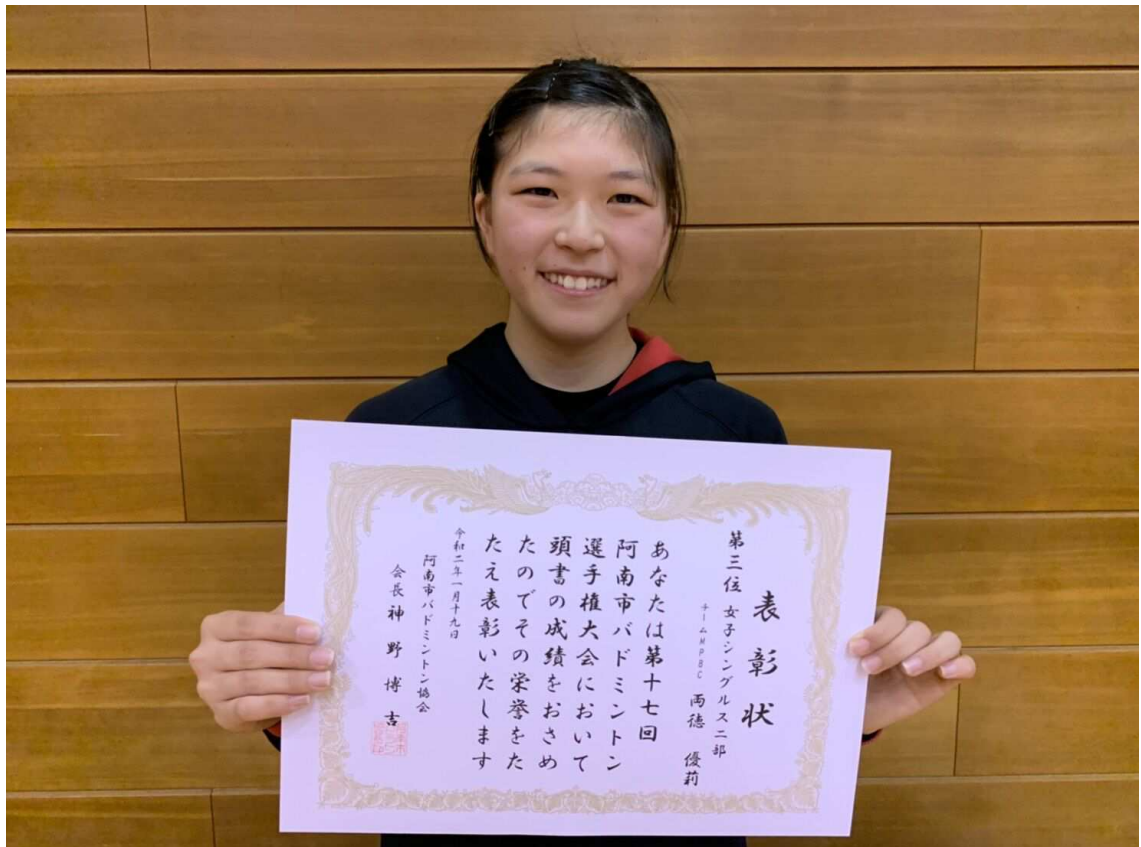 表彰状
第三位 女子シングルス二部
チームMPBC 両徳 優莉
あなたは第十七回
阿南市バドミントン
選手権大会において
頭書の成績をおさめ
たのでその栄誉をた
たえ表彰いたします
令和二年一月十九日
阿南市バドミントン協会
会長 神野博吉